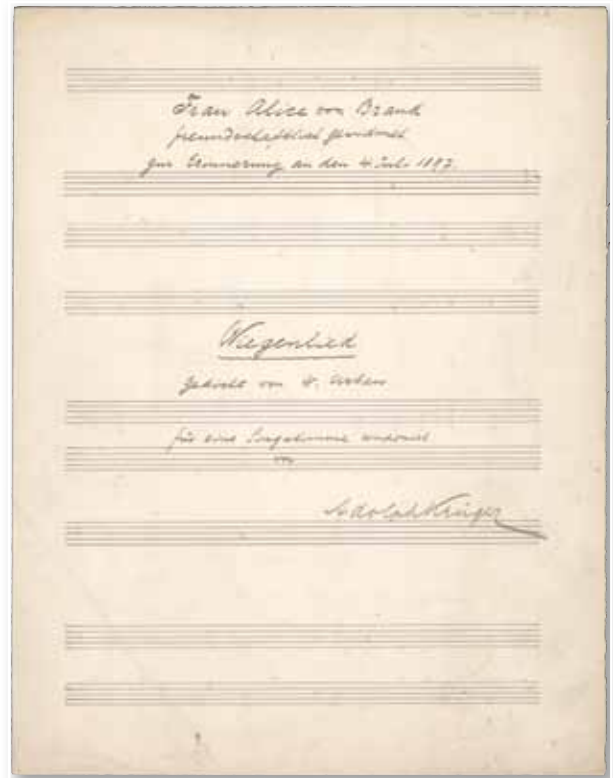 Frau Alice von Brand
freundschaftlich gewidmet
zur Erinnerung an den 4. Juli 1897.
Wiegenlied
Gedicht von
für eine Singstimme
von
Adolph Krüger